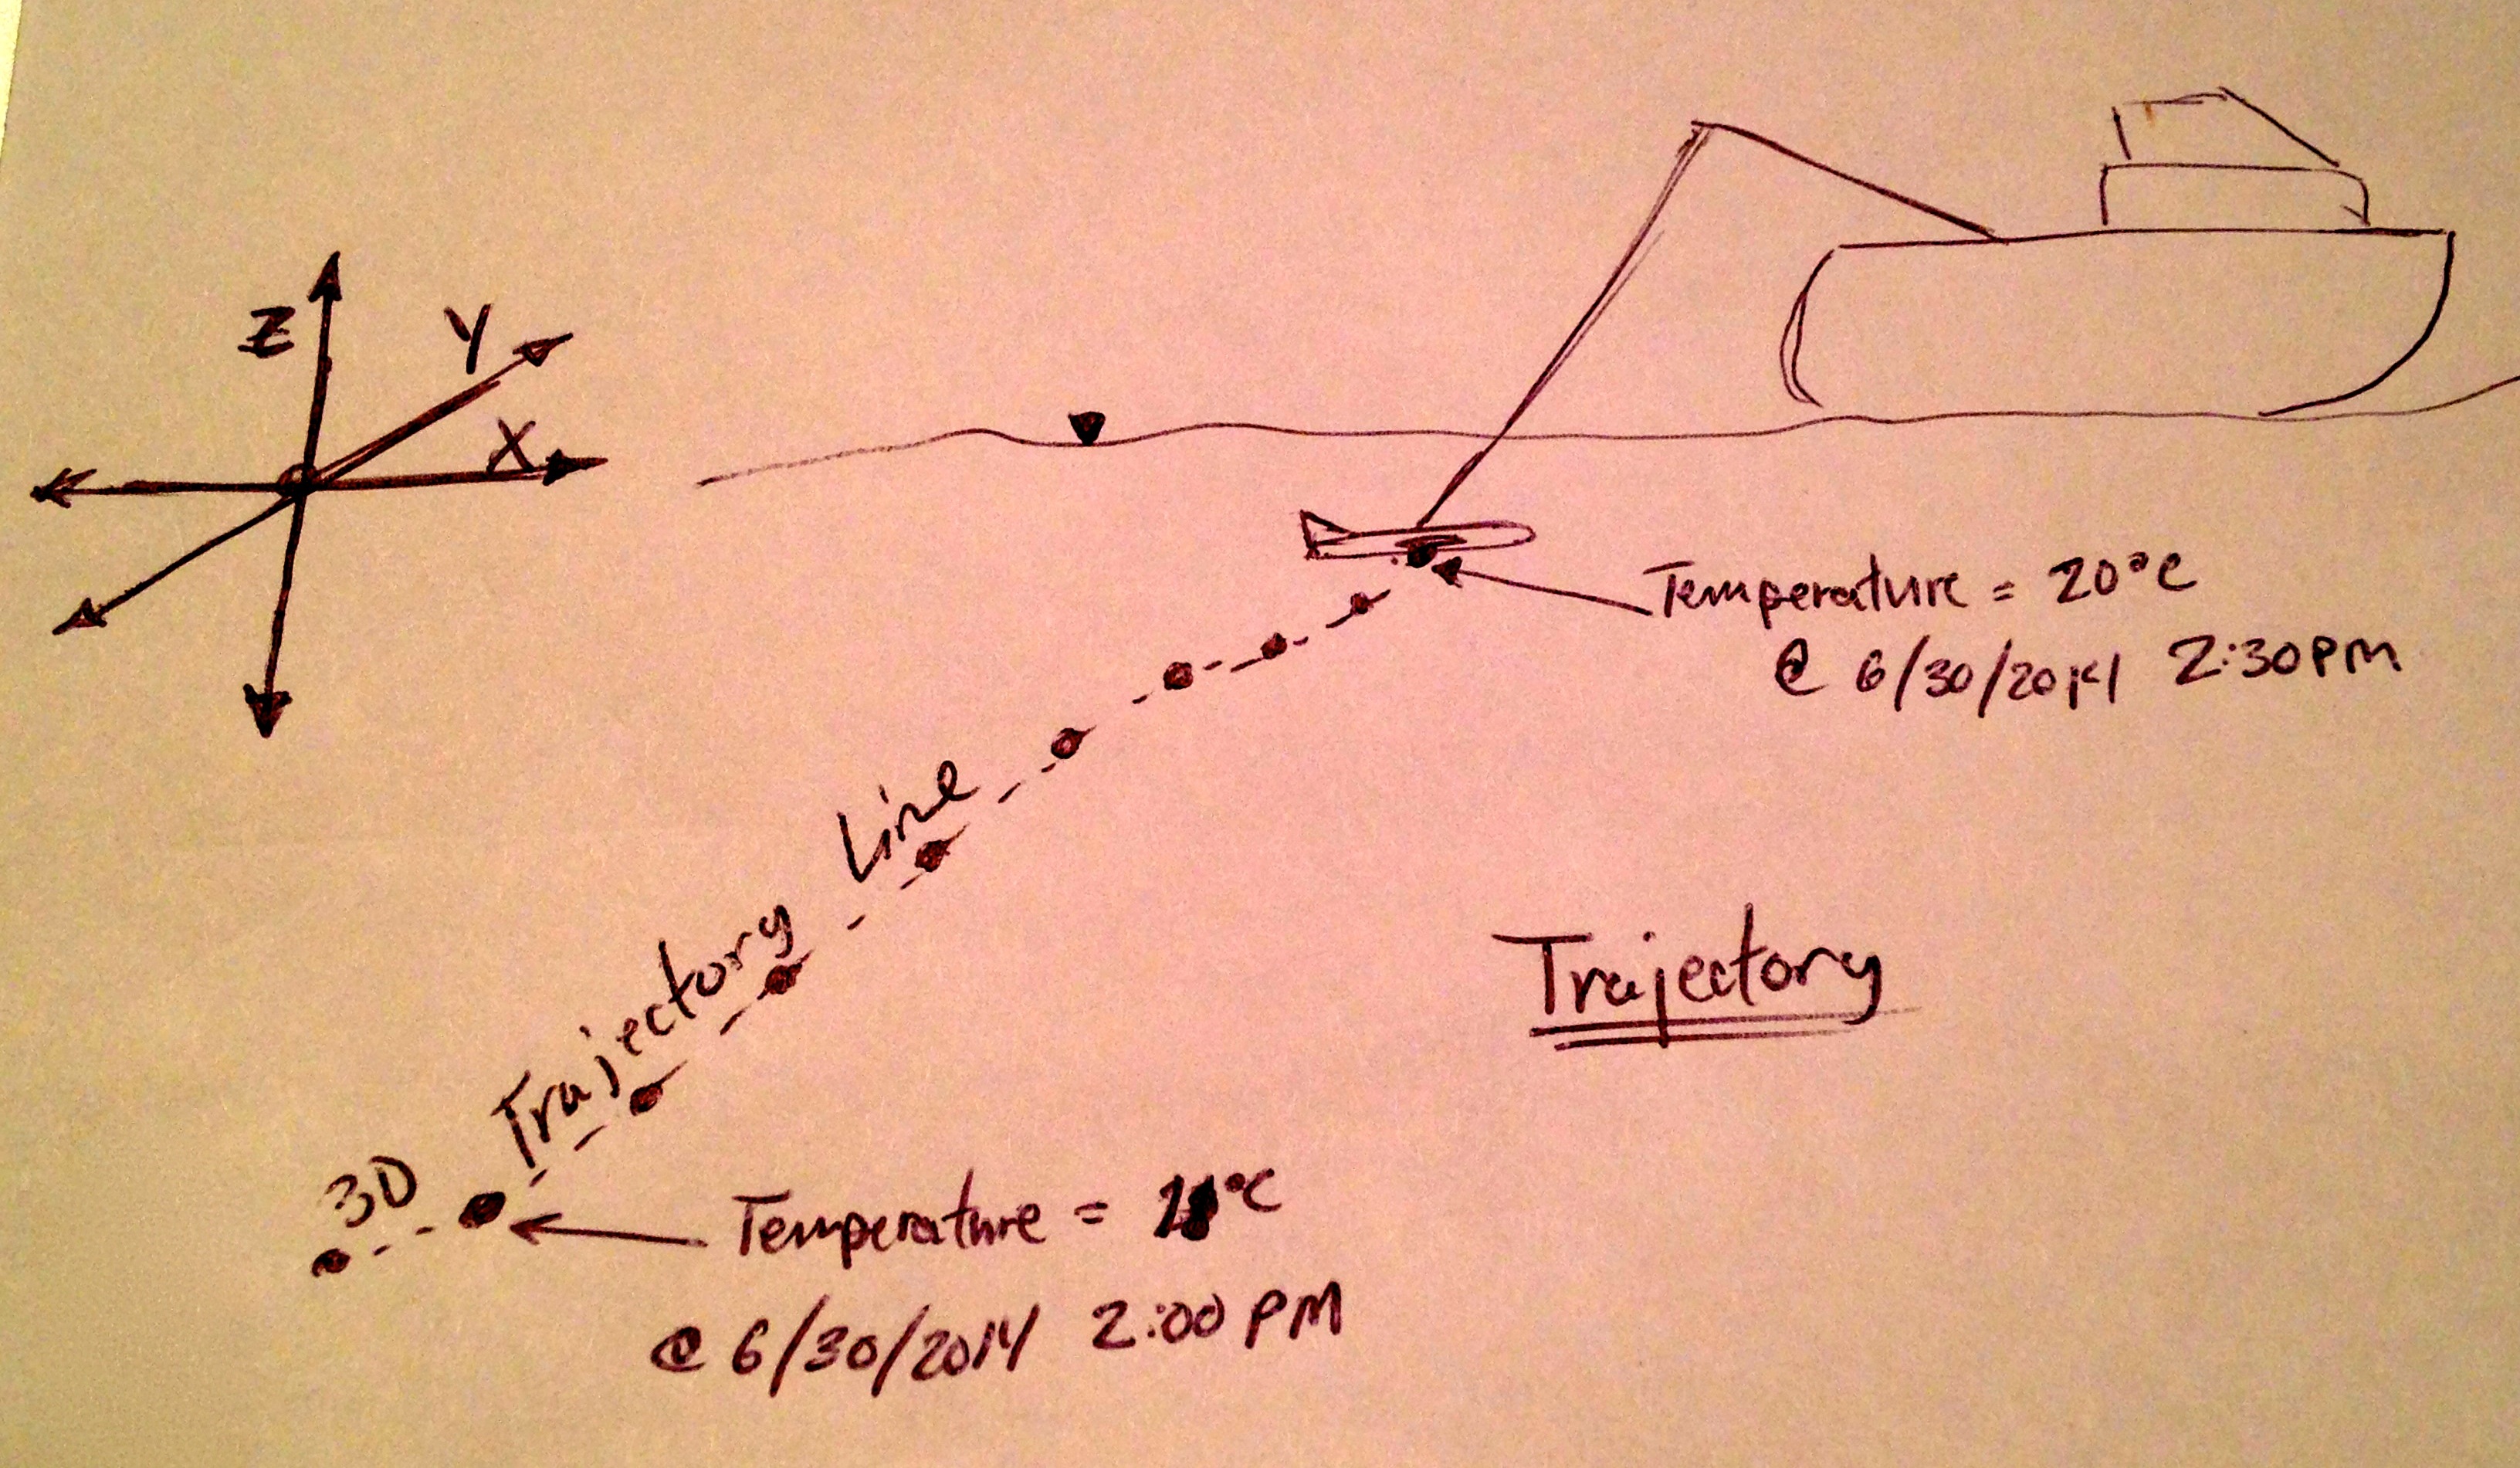 Z
Y
X
Temperature = 20°C
@ 6/30/2014 2:30PM
3D Trajectory Line
Trajectory
Temperature = °C
@ 6/30/2014 2:00 PM